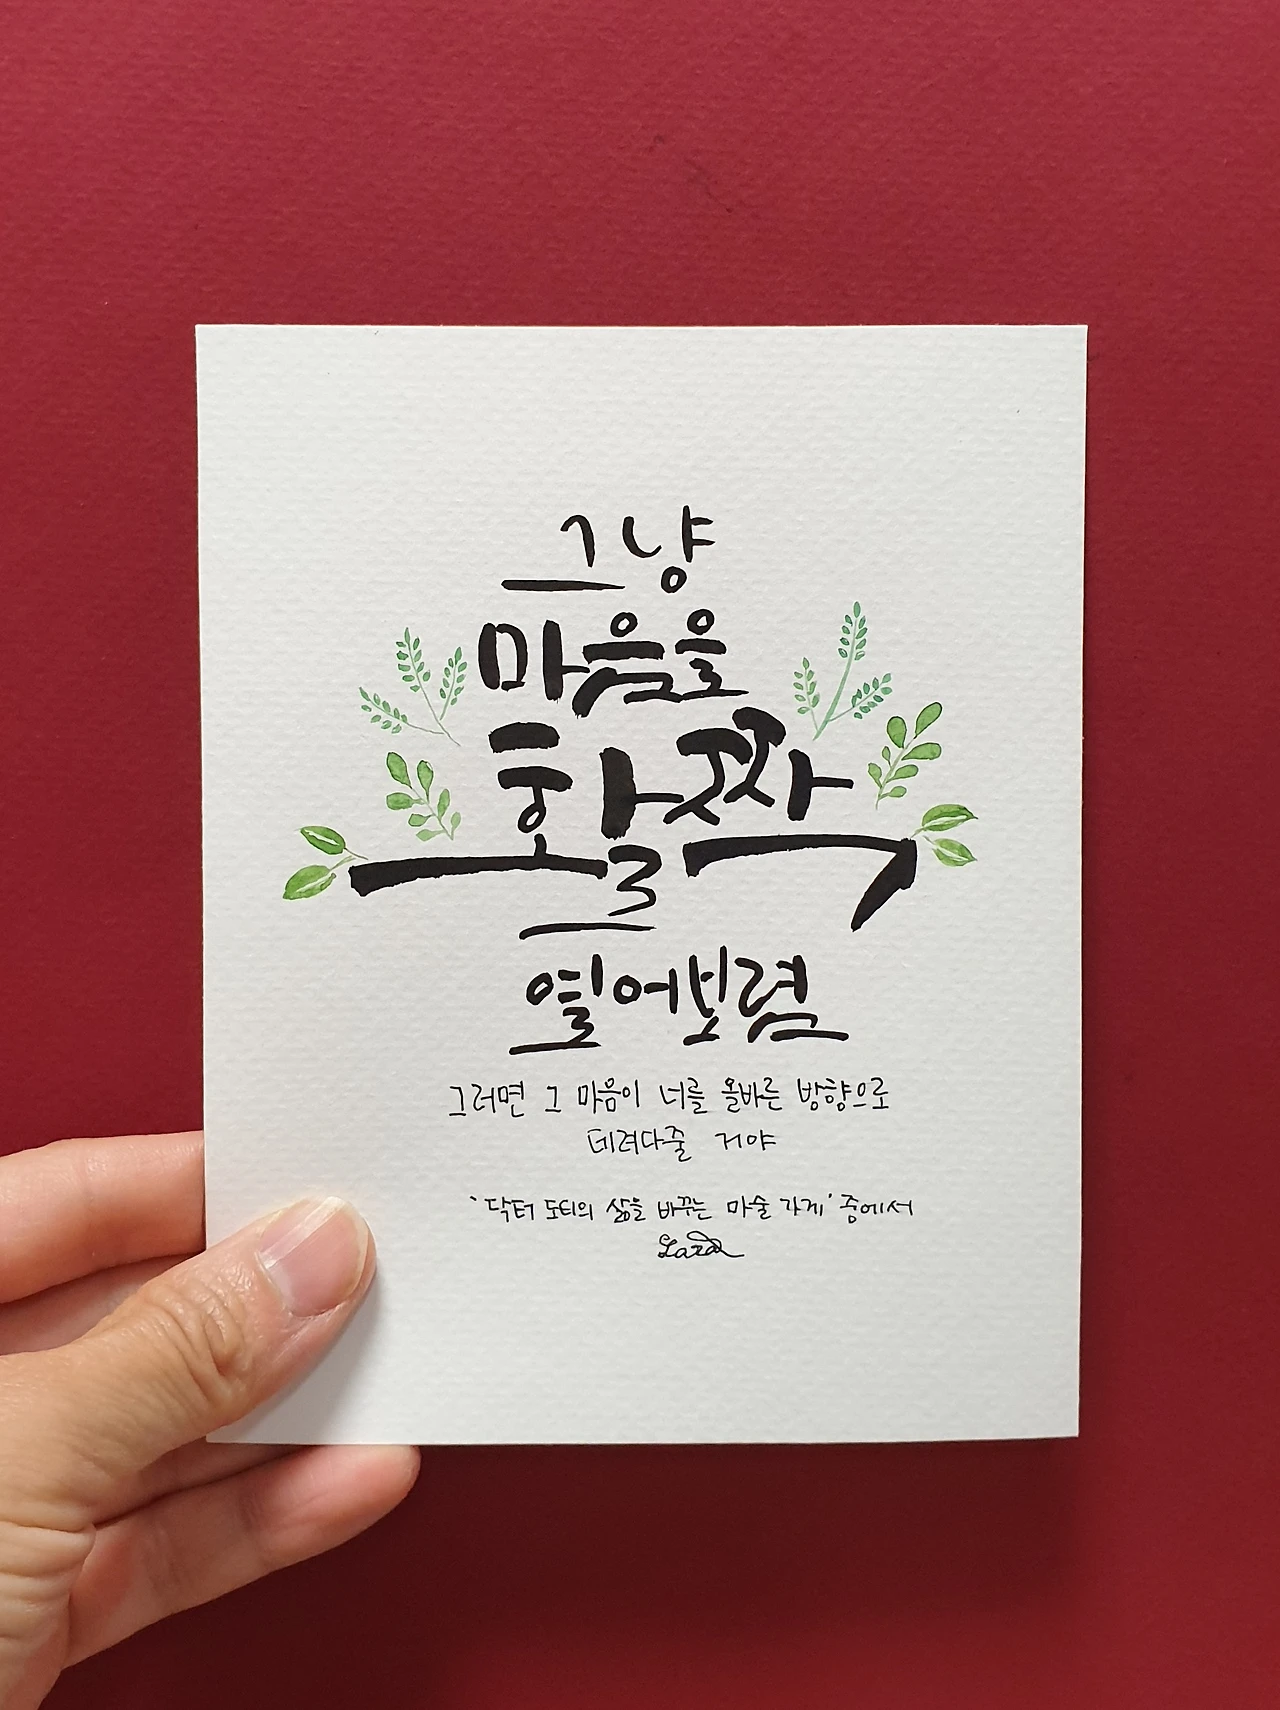 그냥
마음을
활짝
열어보렴
그러면 그 마음이 너를 올바른 방향으로
데려다줄 거야
'닥터 도티의 삶을 바꾸는 마술 가게' 중에서